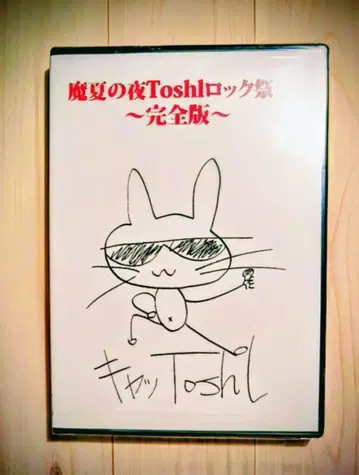 魔夏の夜Toshlロック祭
～完全版～
キャッToshl